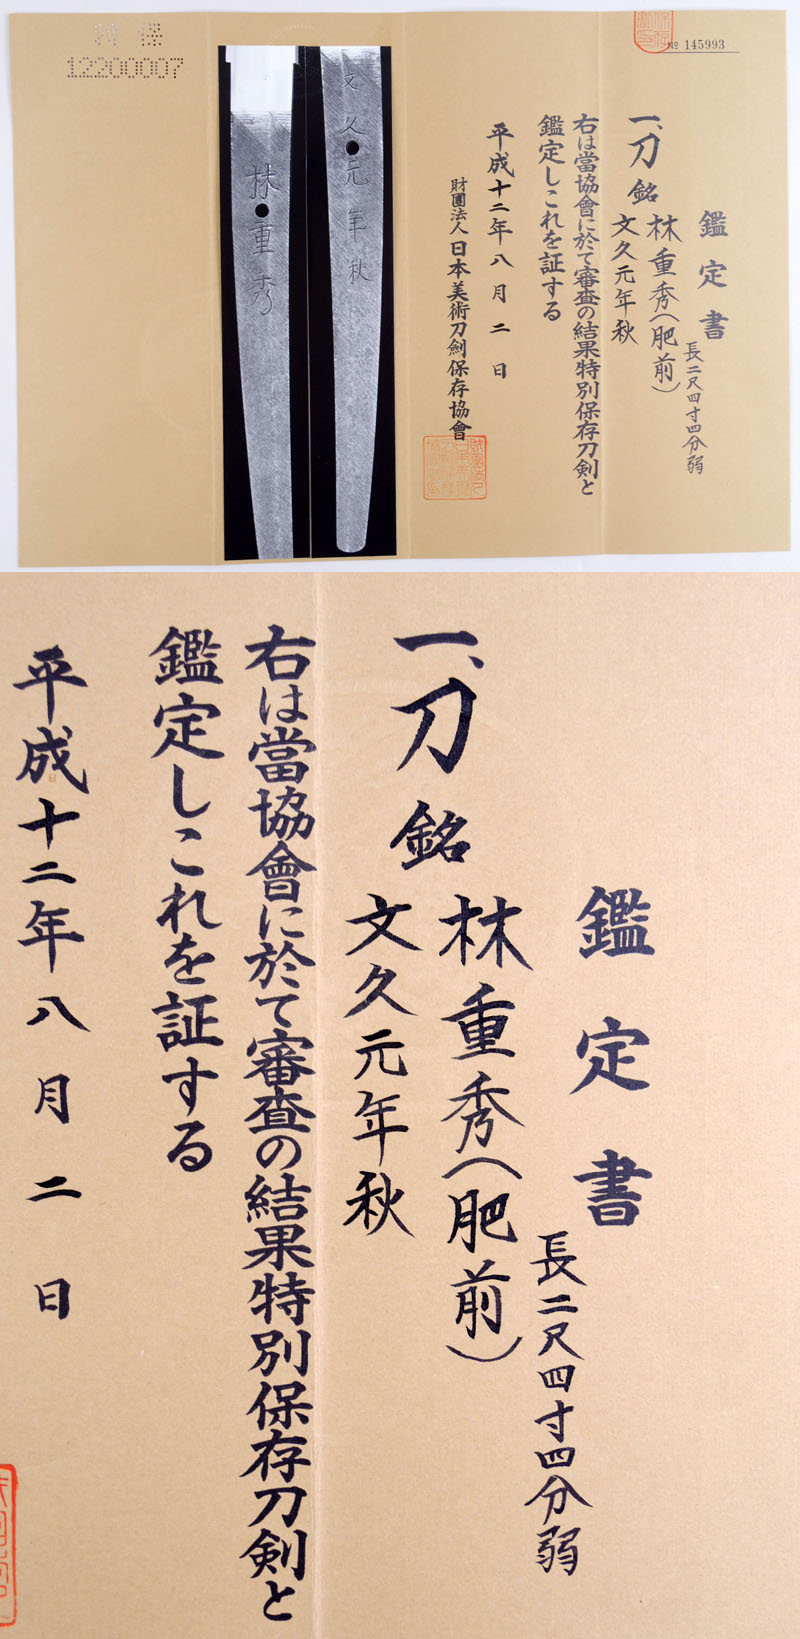 特保
12200007
№ 145993
鑑定書
長二尺四寸四分弱
一、刀 銘
林重秀（肥前）
文久元年秋
右は當協會に於て審査の結果特別保存刀剣と
鑑定しこれを証する
平成十二年八月二日
財團法人 日本美術刀劍保存協會
文久元年秋
林重秀
鑑定書
長二尺四寸四分弱
一、刀 銘
林重秀（肥前）
文久元年秋
右は當協會に於て審査の結果特別保存刀剣と
鑑定しこれを証する
平成十二年八月二日